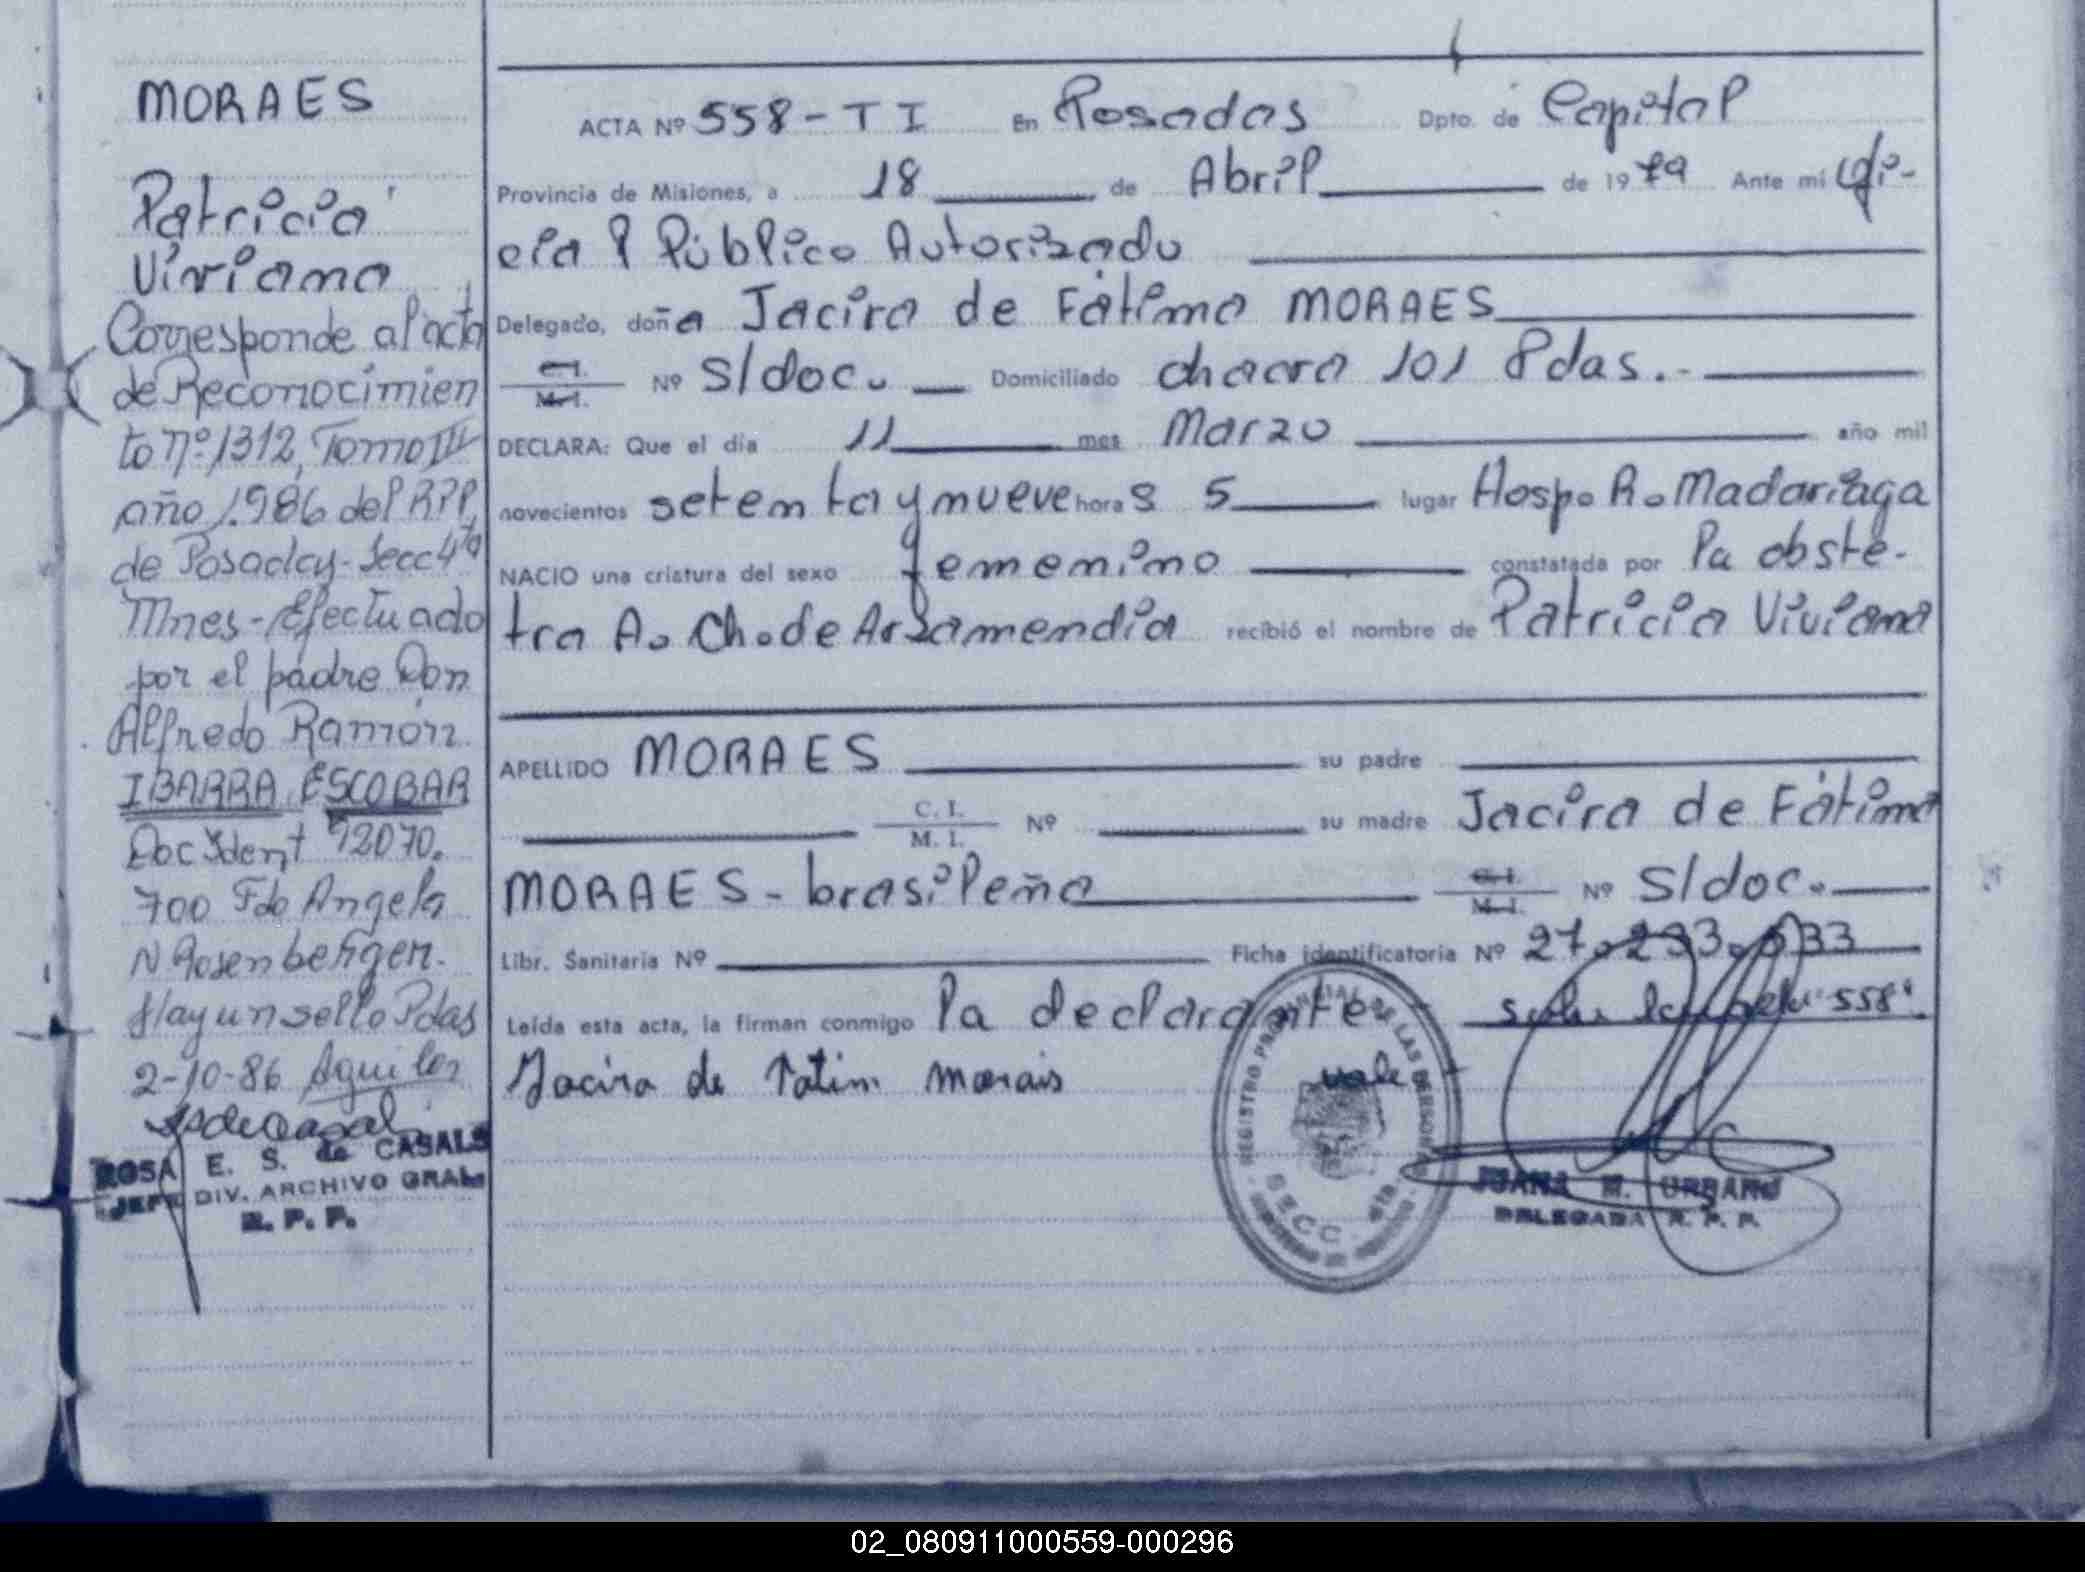 MORAES
Patricia
Viviana
Corresponde al acta
de Reconocimien
to Nº 1312, Tomo III
año 1.986 del RPP,
de Posadas - Secc 4ta
Mnes - Efectuado
por el padre Don
Alfredo Ramón
IBARRA ESCOBAR
Doc Ident 92070.
700 Fdo Angela
N Rosenberger.
Hay un sello Pdas
2-10-86
ROSA E. S. de CASALS
JEFE DIV. ARCHIVO GRAL.
R. P. P.
ACTA Nº 558 - T I En Posadas Dpto. de Capital
Provincia de Misiones, a 18 de Abril de 1979 Ante mi Ofi-
cial Público Autorizado
Delegado, doña Jacira de Fátima MORAES
C.I. M.I. Nº S/doc. Domiciliado chacra 101 Pdas.-
DECLARA: Que el día 11 mes Marzo año mil
novecientos setenta y nueve horas 5 lugar Hosp. R. Madariaga
NACIO una criatura del sexo femenino constatada por la obste-
tra A. Ch. de Arzamendia recibió el nombre de Patricia Viviana
APELLIDO MORAES su padre
C. I. M. I. Nº su madre Jacira de Fátima
MORAES - brasileña C.I. M.I. Nº S/doc.
Libr. Sanitaria Nº Ficha identificatoria Nº 27.233.
Leída esta acta, la firman conmigo la declarante 558
Jacira de Fatim Morais vale
REGISTRO PROVINCIAL DE LAS PERSONAS
SECC. 4ta.
JUANA M. URBANO
DELEGADA R. P. P.
02_080911000559-000296